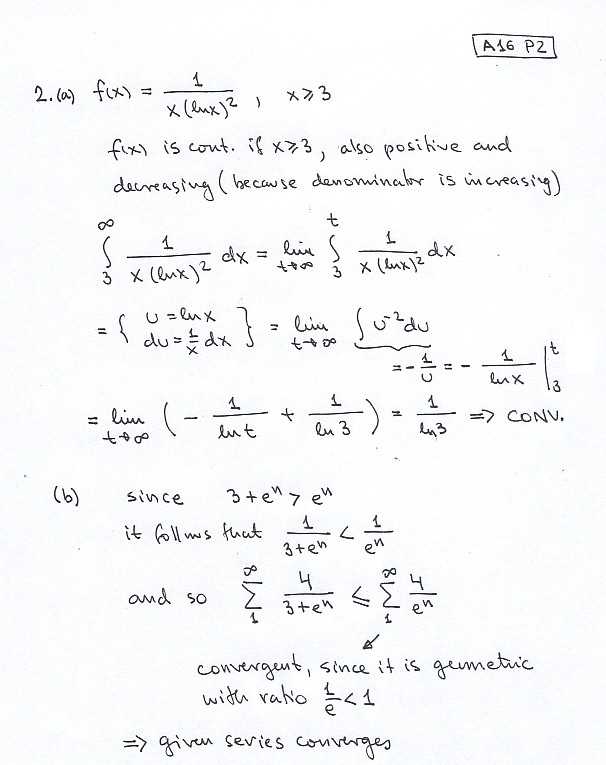 A16 P2
2.(a) f(x) = 1/(x(lnx)²), x⩾3
f(x) is cont. if x⩾3, also positive and
decreasing (because denominator is increasing)
∫₃^∞ 1/(x(lnx)²) dx = lim_{t→∞} ∫₃^t 1/(x(lnx)²) dx
= { u = lnx, du = 1/x dx } = lim_{t→∞} ∫ u⁻² du
= -1/u = - 1/lnx |₃^t
= lim_{t→∞} ( - 1/ln t + 1/ln 3 ) = 1/ln3 ⇒ CONV.
(b) since 3+eⁿ > eⁿ
it follows that 1/(3+eⁿ) < 1/eⁿ
and so ∑₁^∞ 4/(3+eⁿ) ⩽ ∑₁^∞ 4/eⁿ
↙
convergent, since it is geometric
with ratio 1/e < 1
⇒ given series converges